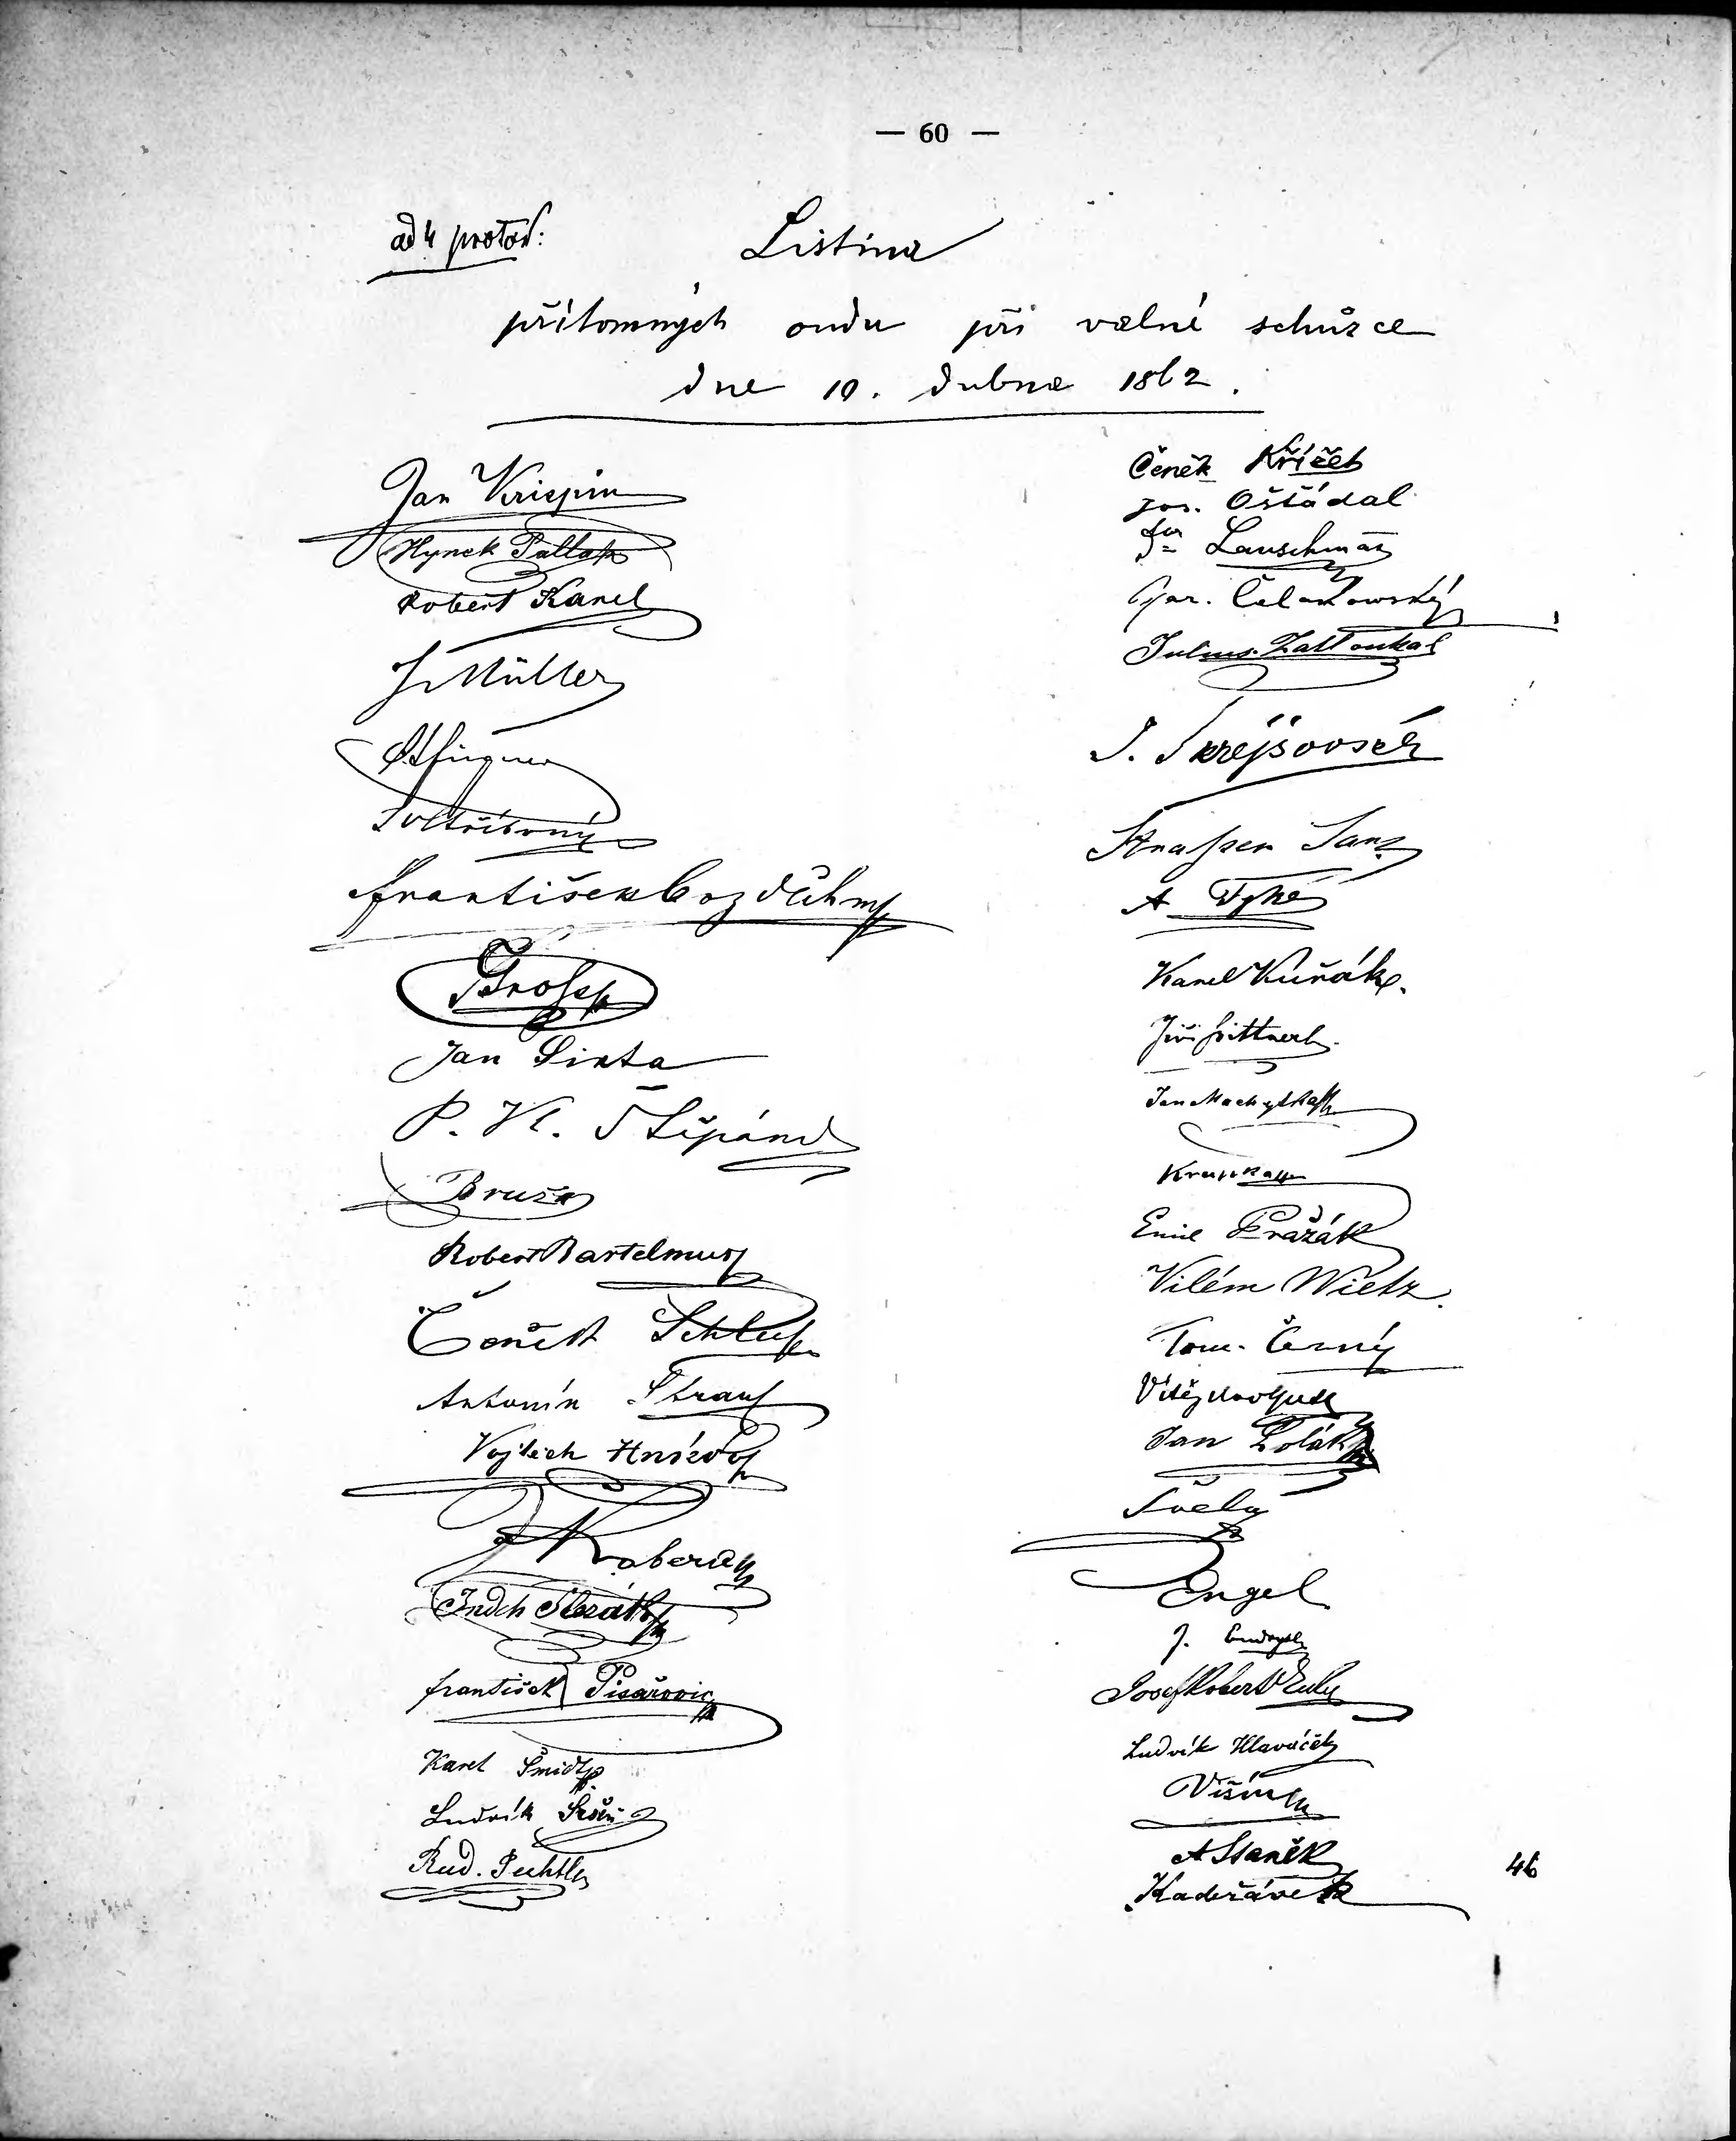 — 60 —
ad 4 protok:
Listina
přítomných oudu při valné schůzce
dne 10. dubna 1862.
Jan Krispin
Hynek Pallak
Robert Karel
J Müller
Fügner
František
Grosse
Jan Sixta
P. Vl. Štěpánek
Bruža
Robert Bartelmus
Čeněk Schluss
Antonín Strauss
Vojtěch Hnízdo
Koberan
Indch
František Pisařovic
Karel Šmidt
Ludvík
Rud. Pechtl
Čeněk Křížek
Jos. Ošťádal
Lauschman
Jar. Čelakowský
Julius Zattoukal
J. Skrejšovský
Strasser Jan
A Tyke
Karel Kuňák
Jiří Bittner
Jan Machytka
Kraupka
Emil Pražák
Vilém Wietz.
Tom. Černý
Jan Polák
Švely
Engel
J.
Josef Robert
Ludvík Hlaváček
Višín
A Staněk
Kadeřávek
46